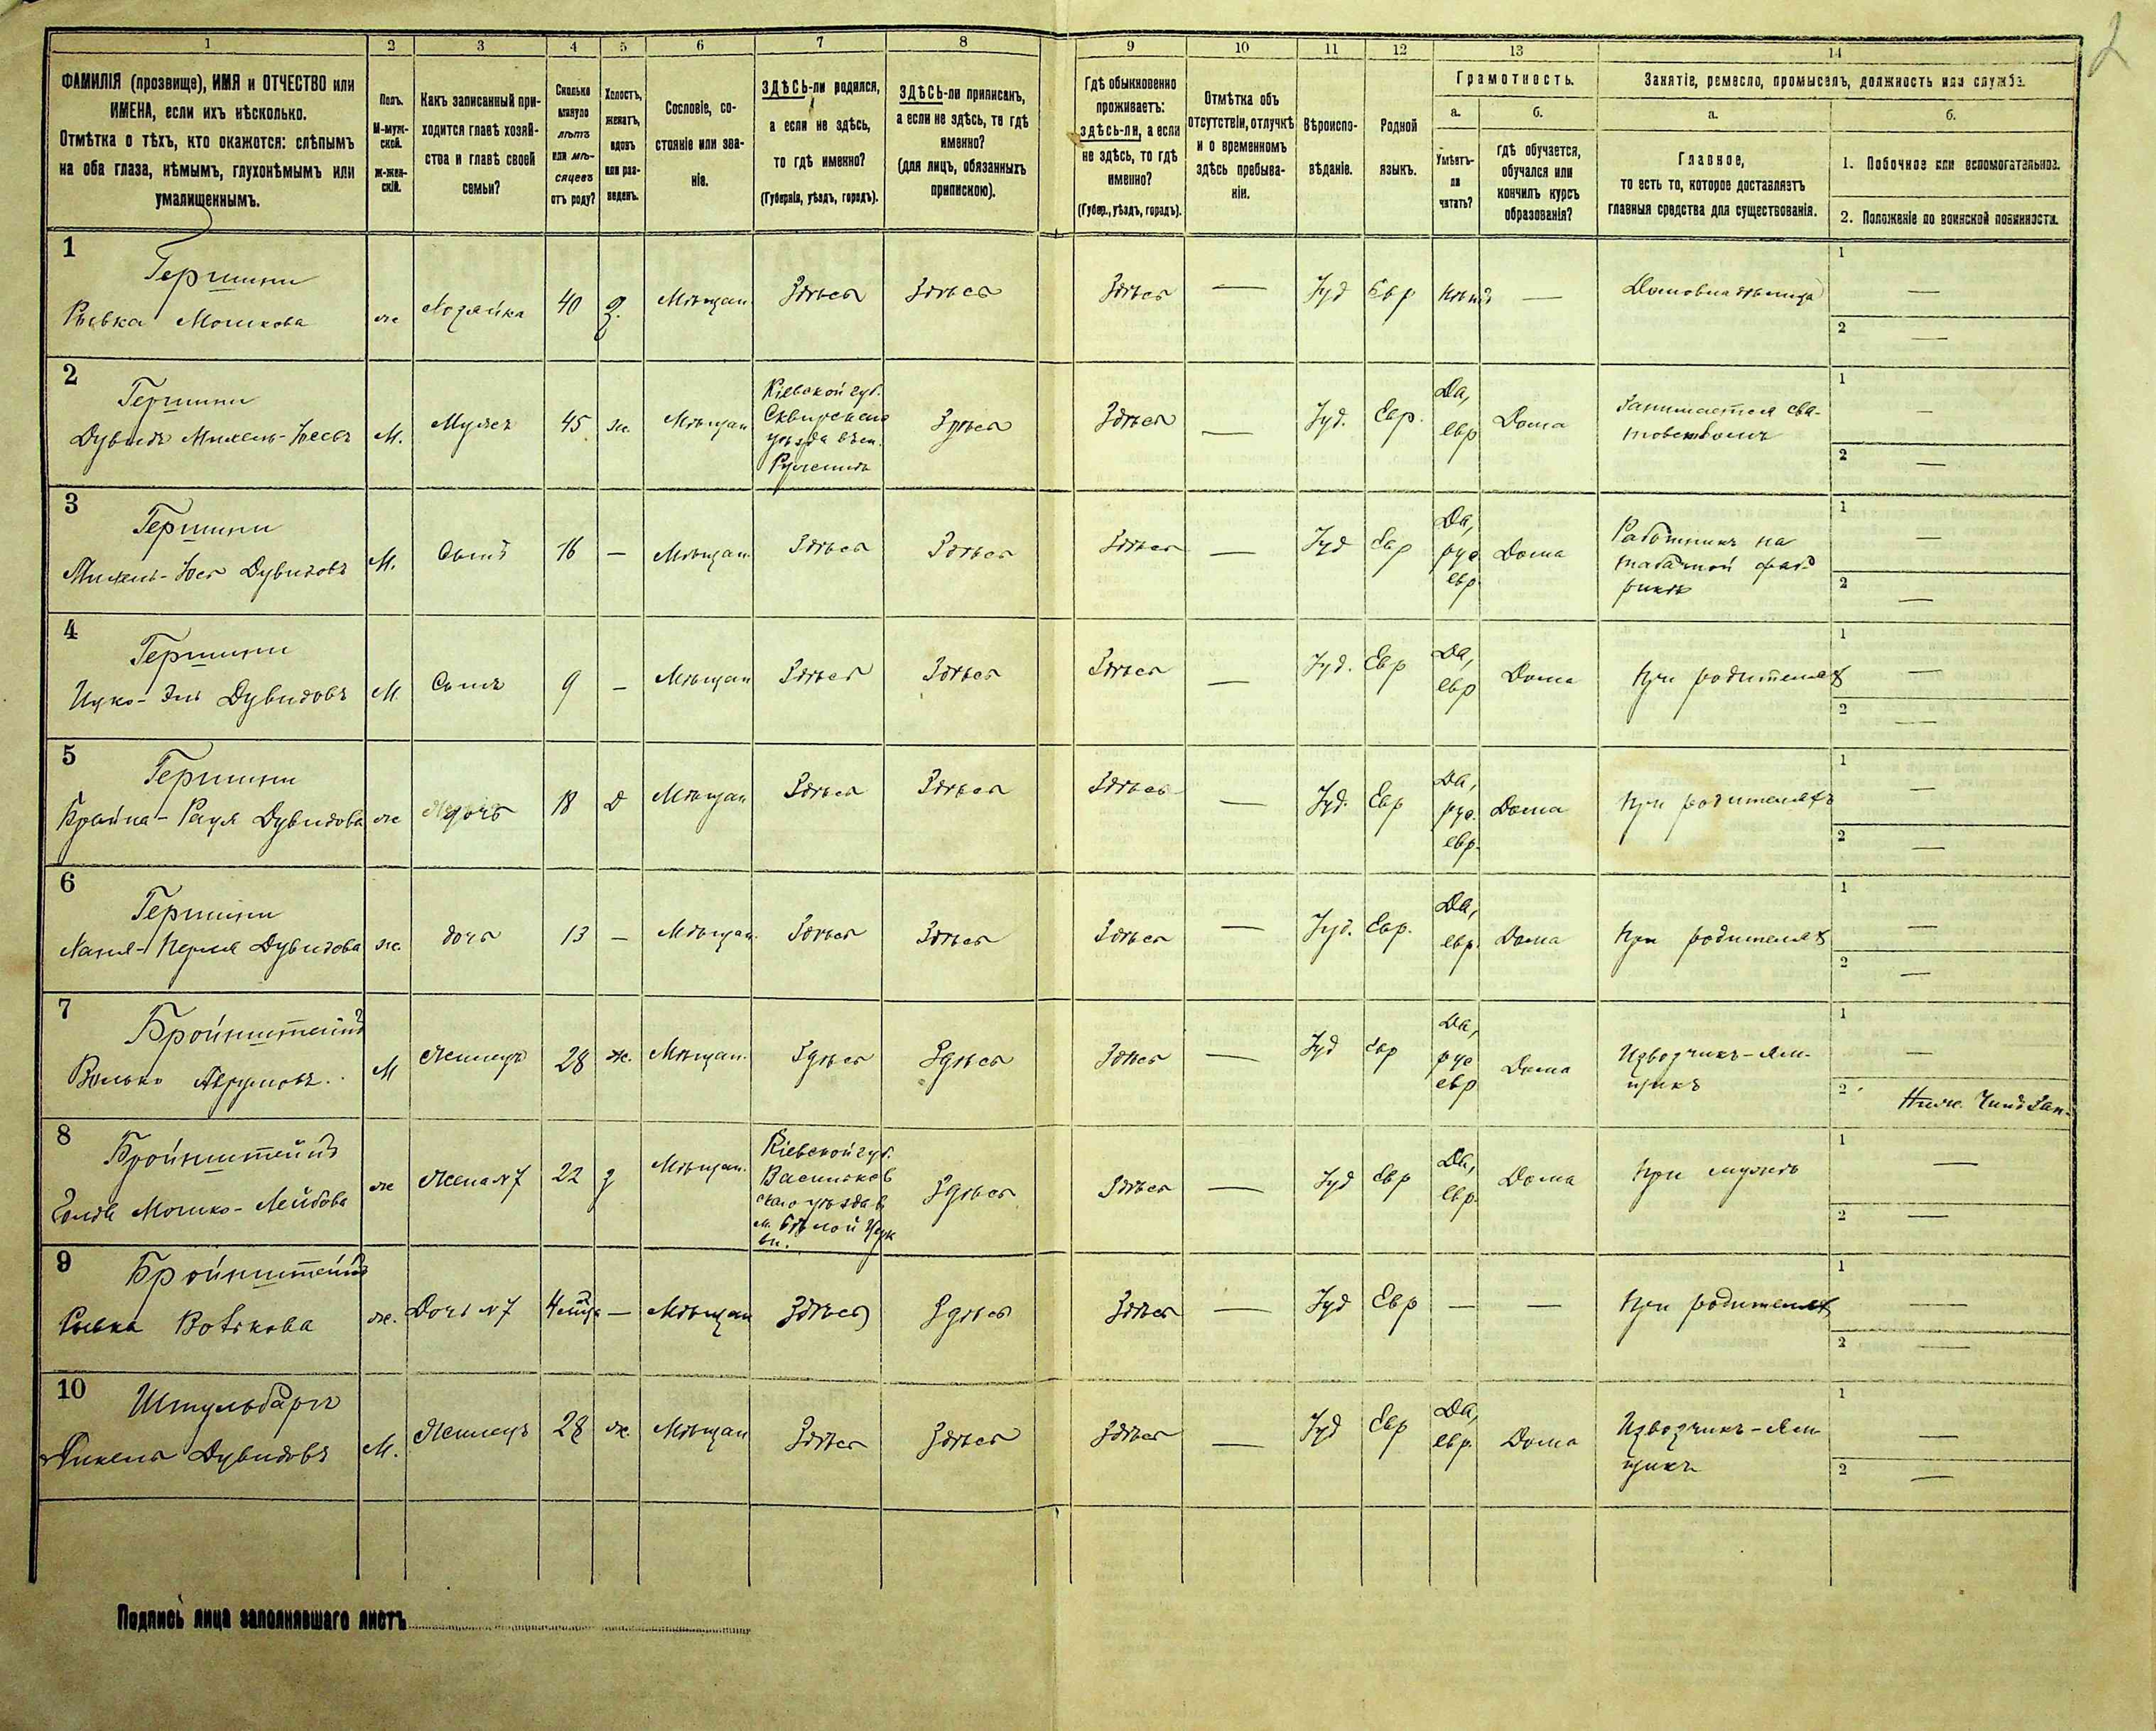 2
1 2 3 4 5 6 7 8 9 10 11 12 13 14
ФАМИЛІЯ (прозвище), ИМЯ и ОТЧЕСТВО или
ИМЕНА, если ихъ нѣсколько.
Отмѣтка о тѣхъ, кто окажется: слѣпымъ
на оба глаза, нѣмымъ, глухонѣмымъ или
умалишеннымъ.
Полъ.
М-муж-
ской.
ж-жен-
скій.
Какъ записанный при-
ходится главѣ хозяй-
ства и главѣ своей
семьи?
Сколько
минуло
лѣтъ
или мѣ-
сяцевъ
отъ роду?
Холостъ,
женатъ,
вдовъ
или раз-
веденъ.
Сословіе, со-
стояніе или зва-
ніе.
ЗДѢСЬ-ли родился,
а если не здѣсь,
то гдѣ именно?
(Губернія, уѣздъ, городъ).
ЗДѢСЬ-ли приписанъ,
а если не здѣсь, то гдѣ
именно?
(для лицъ, обязанныхъ
припискою).
Гдѣ обыкновенно
проживаетъ:
здѣсь-ли, а если
не здѣсь, то гдѣ
именно?
(Губер., уѣздъ, городъ).
Отмѣтка объ
отсутствіи, отлучкѣ
и о временномъ
здѣсь пребыва-
ніи.
Вѣроиспо-
вѣданіе.
Родной
языкъ.
Грамотность.
а.
Умѣетъ-
ли
читать?
б.
гдѣ обучается,
обучался или
кончилъ курсъ
образованія?
Занятіе, ремесло, промыселъ, должность или служба.
а.
Главное,
то есть то, которое доставляетъ
главныя средства для существованія.
б.
1. Побочное или вспомогательное.
2. Положеніе по воинской повинности.
1
Гершини
Рывка Мошкова
ж Хозяйка 40 З. Мѣщан. Здѣсь Здѣсь Здѣсь — Іуд Евр Нѣтъ — Домовладѣлица
1 —
2 —
2
Гершини
Дувидъ Михель-Іосевъ
М. Мужъ 45 ж. Мѣщан
Кіевской губ.
Сквирскаго
уѣзда въ м.
Ружинѣ
Здѣсь Здѣсь — Іуд. Евр.
Да,
евр
Дома
Занимается сва-
товствомъ
1 —
2 —
3
Гершини
Михель-Іос Дувидовъ
М. Сынъ 16 — Мѣщан. Здѣсь Здѣсь Здѣсь — Іуд Евр
Да,
рус
евр.
Дома
Работникъ на
табачной фаб-
рикѣ
1 —
2 —
4
Гершини
Ицко-Эль Дувидовъ
М Сынъ 9 — Мѣщан Здѣсь Здѣсь Здѣсь — Іуд. Евр
Да,
евр
Дома При родителях
1 —
2 —
5
Гершини
Крайна- Дувидова
ж дочь 18 д Мѣщан Здѣсь Здѣсь Здѣсь — Іуд. Евр
Да,
рус.
евр.
Дома При родителяхъ
1 —
2 —
6
Гершини
Перля Дувидова
ж. дочь 13 — Мѣщан. Здѣсь Здѣсь Здѣсь — Іуд. Евр.
Да,
евр.
Дома При родителях
1 —
2 —
7
Бройнштейнъ
Волько Аврумовъ
М Жилецъ 28 ж. Мѣщан. Здѣсь Здѣсь Здѣсь — Іуд Евр
Да,
рус
евр
Дома
Извозчикъ-Ям-
щикъ
1 —
2 Ниж. Чинъ Зап.
8
Бройнштейнъ
Голда Мошко-Лейбова
ж Жена №7 22 З Мѣщан.
Кіевской губ.
Васильков
скаго уѣзда в
м. Бѣлой Церк
ви.
Здѣсь Здѣсь — Іуд Евр
Да,
евр.
Дома При мужѣ
1 —
2 —
9
Бройнштейнъ
Рывка Волькова
ж. Дочь №7 4 мѣс — Мѣщан Здѣсь Здѣсь Здѣсь — Іуд Евр — — При родителях
1 —
2 —
10
Штульбаргъ
Михель Дувидовъ
М. Жилецъ 28 ж. Мѣщан Здѣсь Здѣсь Здѣсь — Іуд Евр
Да,
евр.
Дома
Извозчикъ-Ям-
щикъ
1 —
2 —
Подпись лица заполнявшаго листъ